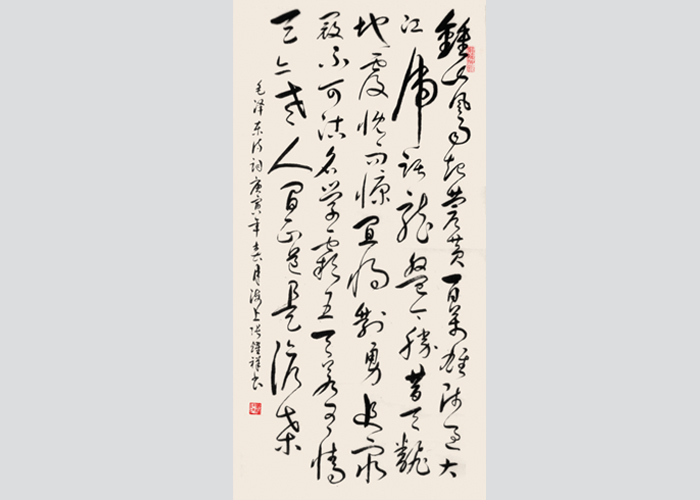 鍾山風雨起蒼黄百萬雄师过大
江虎踞龙盤今勝昔天翻
地覆慨而慷宜将剩勇追窮
寇不可沽名学霸王天若有情
天亦老人间正道是滄桑
毛泽东诗词庚寅年月海上张鍾祥书